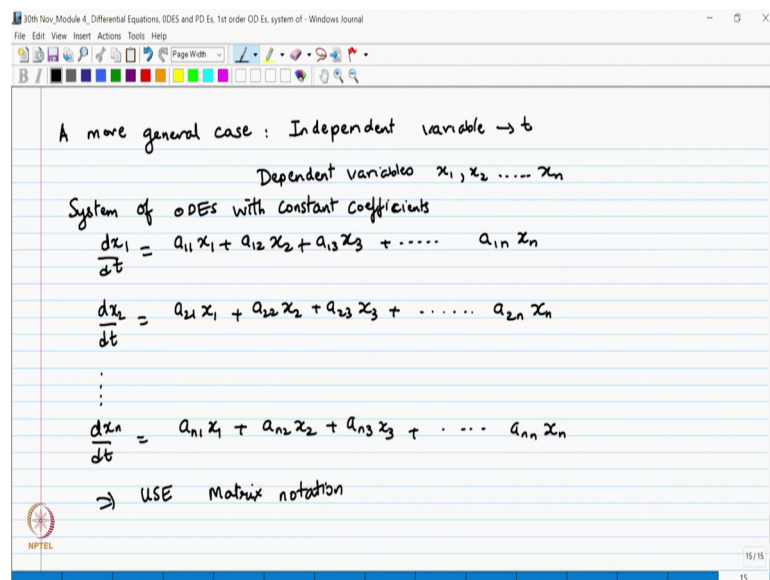 30th Nov_Module 4_ Differential Equations, ODES and PD Es, 1st order OD Es, system of - Windows Journal
File Edit View Insert Actions Tools Help
Page Width
B I
A more general case : Independent variable → t
Dependent variables x₁, x₂ ..... xₙ
System of ODEs with constant coefficients
dx₁/dt = a₁₁ x₁ + a₁₂ x₂ + a₁₃ x₃ + ..... a₁ₙ xₙ
dx₂/dt = a₂₁ x₁ + a₂₂ x₂ + a₂₃ x₃ + ...... a₂ₙ xₙ
⋮
dxₙ/dt = aₙ₁ x₁ + aₙ₂ x₂ + aₙ₃ x₃ + . ... aₙₙ xₙ
⇒ USE Matrix notation
NPTEL
15/15
15